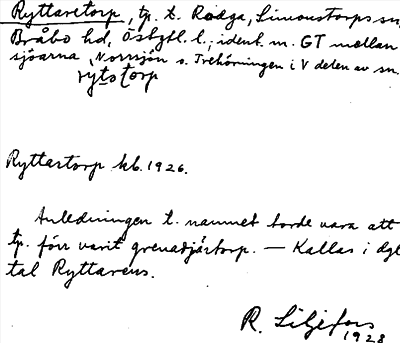 Ryttaretorp, tp. t. Rodga, Simonstorps sn,
Bråbo hd, Östgtl. l.; ident. m. GT mellan
sjöarna, Norrsjön o. Trehörningen i V delen av sn.
rytotorp
Ryttartorp kb. 1926.
Anledningen t. namnet torde vara att
tp. förr varit grenadjärtorp. — Kallas i dgl
tal Ryttarens.
R. Liljefors
1928